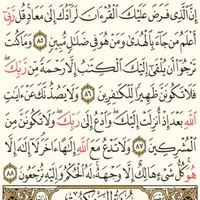 إِنَّ ٱلَّذِى فَرَضَ عَلَيْكَ ٱلْقُرْءَانَ لَرَآدُّكَ إِلَىٰ مَعَادٍ قُل رَّبِّىٓ
أَعْلَمُ مَن جَآءَ بِٱلْهُدَىٰ وَمَنْ هُوَ فِى ضَلَٰلٍ مُّبِينٍ ٨٥ وَمَا كُنتَ
تَرْجُوٓا۟ أَن يُلْقَىٰٓ إِلَيْكَ ٱلْكِتَٰبُ إِلَّا رَحْمَةً مِّن رَّبِّكَ
فَلَا تَكُونَنَّ ظَهِيرًا لِّلْكَٰفِرِينَ ٨٦ وَلَا يَصُدُّنَّكَ عَنْ ءَايَٰتِ
ٱللَّهِ بَعْدَ إِذْ أُنزِلَتْ إِلَيْكَ وَٱدْعُ إِلَىٰ رَبِّكَ وَلَا تَكُونَنَّ مِنَ
ٱلْمُشْرِكِينَ ٨٧ وَلَا تَدْعُ مَعَ ٱللَّهِ إِلَٰهًا ءَاخَرَ لَآ إِلَٰهَ إِلَّا
هُوَ كُلُّ شَىْءٍ هَالِكٌ إِلَّا وَجْهَهُۥ لَهُ ٱلْحُكْمُ وَإِلَيْهِ تُرْجَعُونَ ٨٨